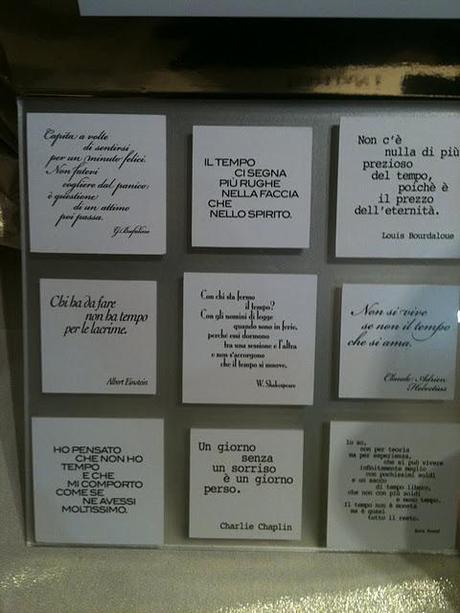 Capita a volte
di sentirsi
per un minuto felici.
Non fatevi
cogliere dal panico:
è questione
di un attimo
poi passa.
G.Bufalino
IL TEMPO
CI SEGNA
PIÙ RUGHE
NELLA FACCIA
CHE
NELLO SPIRITO.
Non c'è
nulla di più
prezioso
del tempo,
poichè è
il prezzo
dell'eternità.
Louis Bourdaloue
Chi ha da fare
non ha tempo
per le lacrime.
Albert Einstein
Con chi sta fermo
il tempo?
Con gli uomini di legge
quando sono in ferie,
perché essi dormono
tra una sessione e l'altra
e non s'accorgono
che il tempo si muove.
W. Shakespeare
Non si vive
se non il tempo
che si ama.
Claude Adrien
Helvetius
HO PENSATO
CHE NON HO
TEMPO
E CHE
MI COMPORTO
COME SE
NE AVESSI
MOLTISSIMO.
Un giorno
senza
un sorriso
è un giorno
perso.
Charlie Chaplin
Io so,
non per teoria
ma per esperienza,
che si può vivere
infinitamente meglio
con pochissimi soldi
e un sacco
di tempo libero,
che non con più soldi
e meno tempo.
Il tempo non è moneta
ma è quasi
tutto il resto.
Ezra Pound